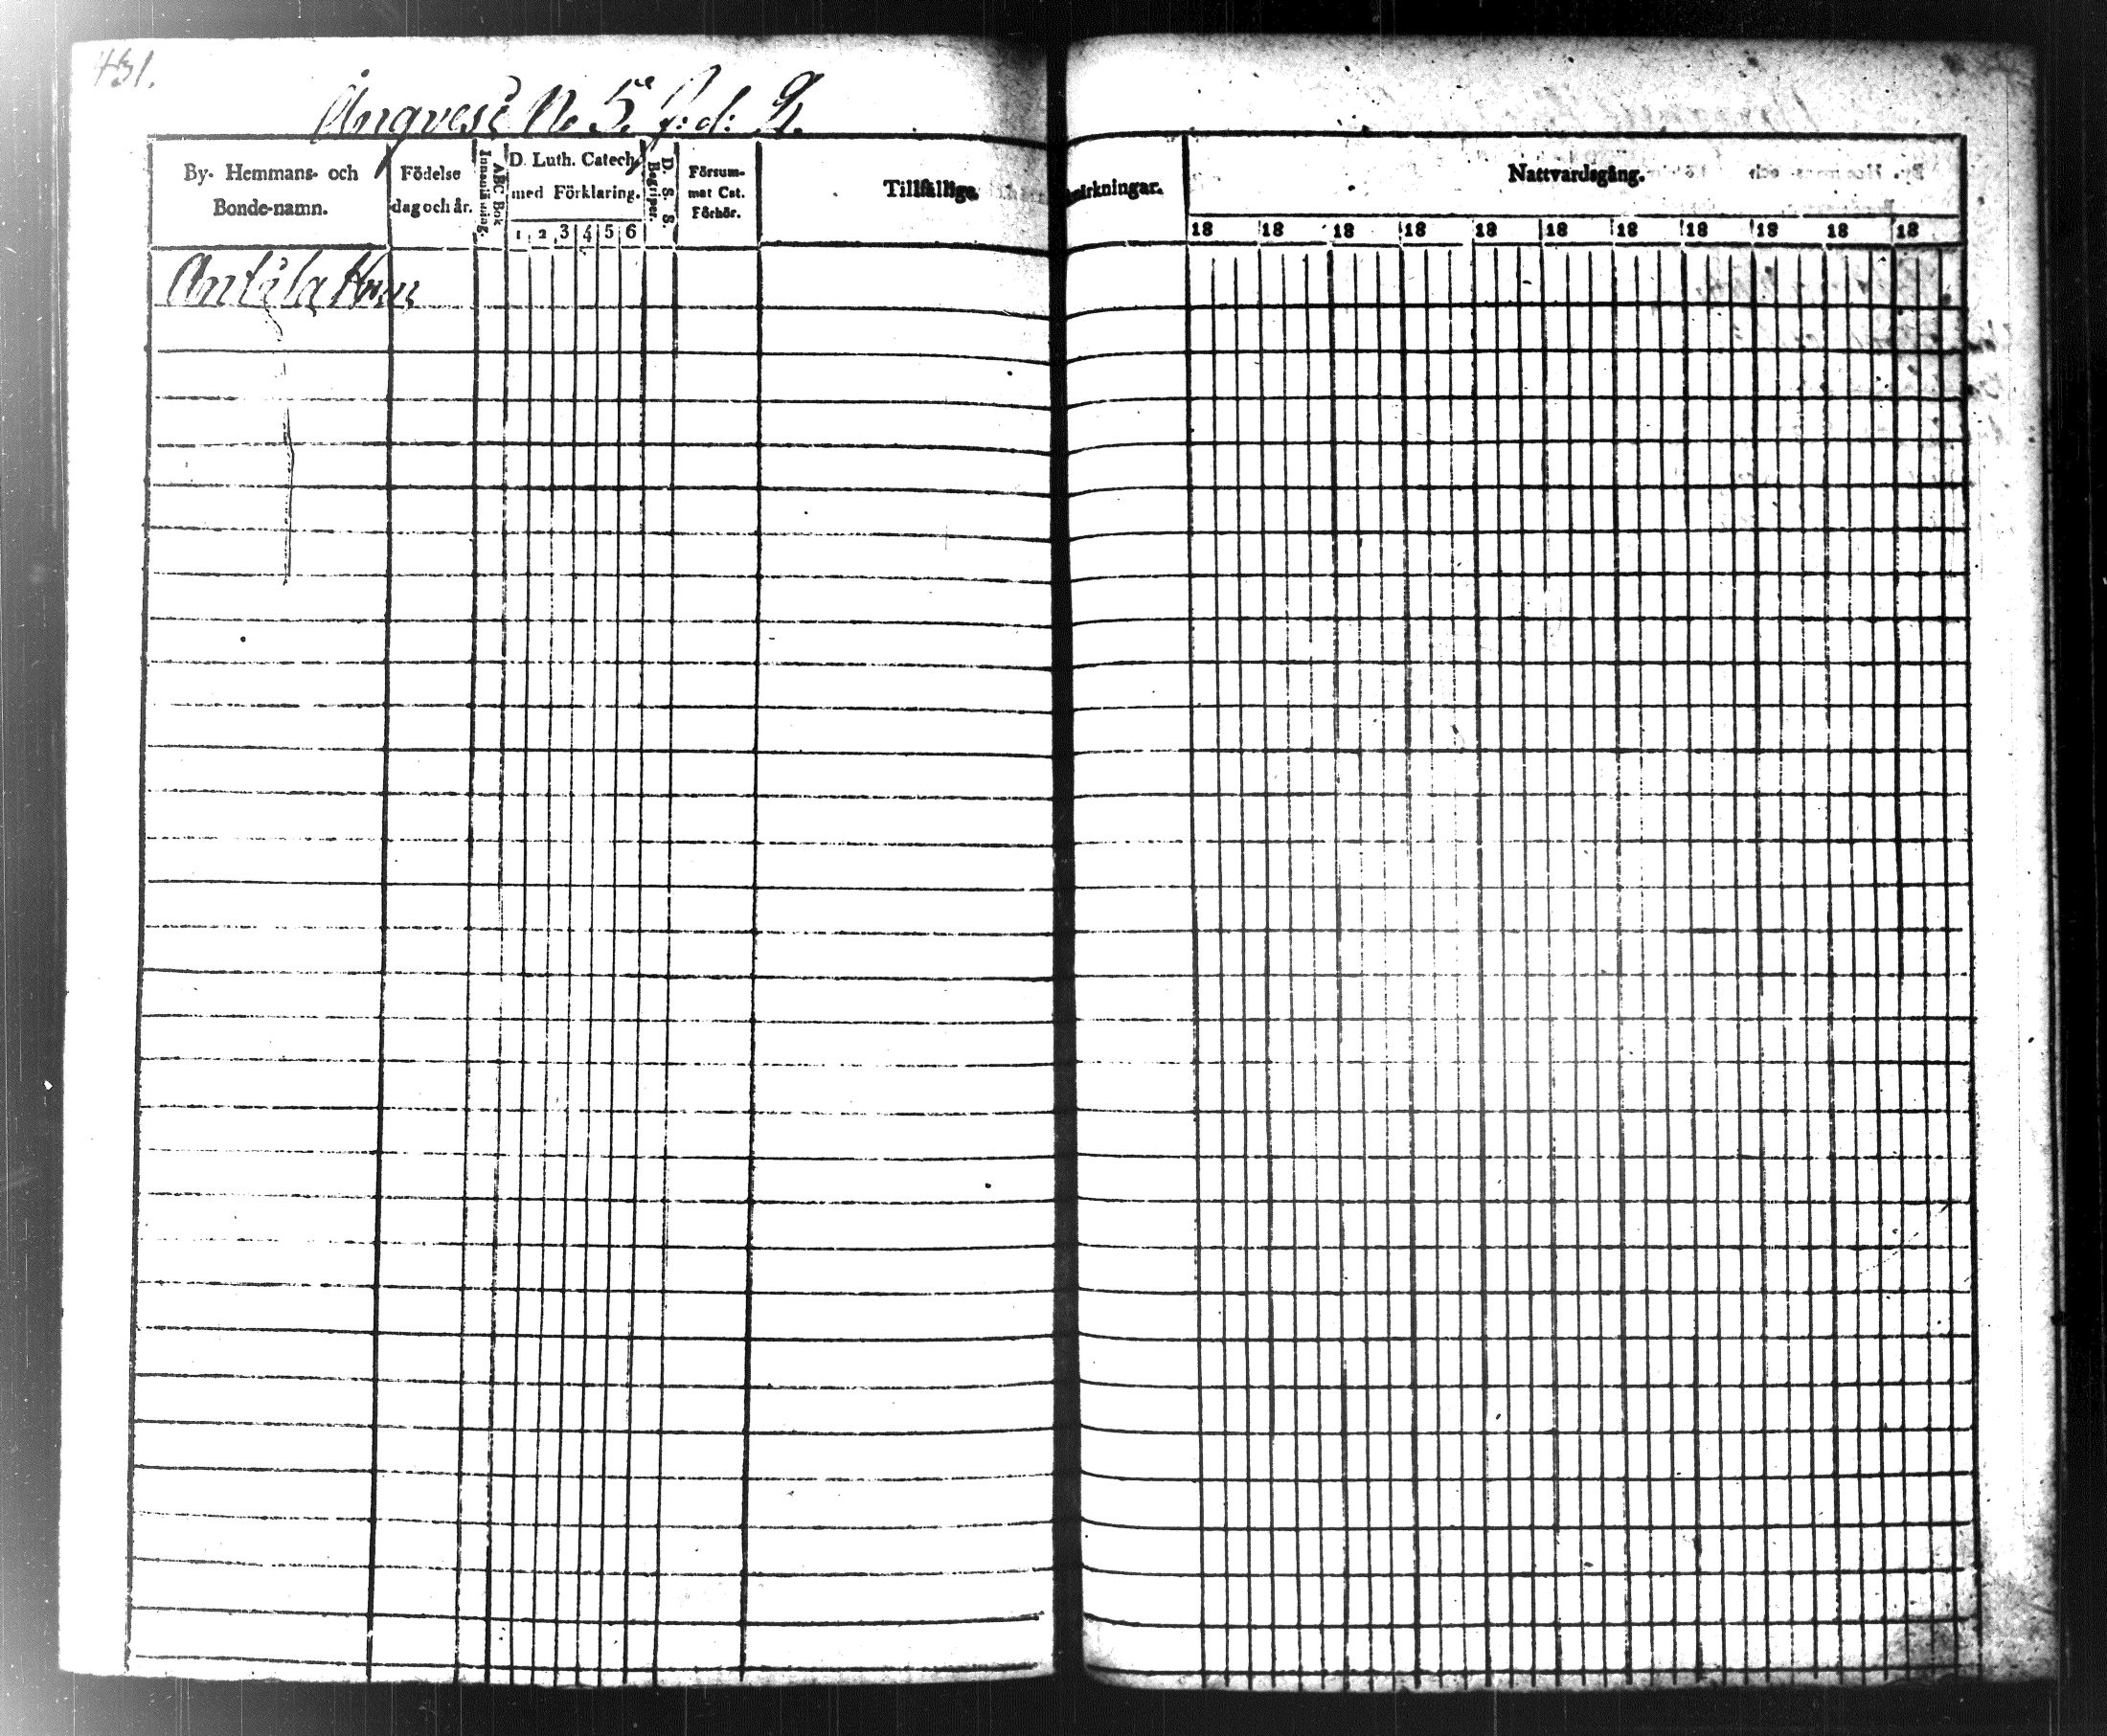 431.
Ångvesi N. 5. f: d: 2.
By- Hemmans- och
Bonde-namn.
Födelse
dag och år.
ABC Bok
Innanläsning.
D. Luth. Catech.
med Förklaring.
1 2 3 4 5 6
D. S. S.
Begriper.
Försum-
mat Cat.
Förhör.
Tillfällige Anmärkningar.
Nattvardsgång.
18 18 18 18 18 18 18 18 18 18 18